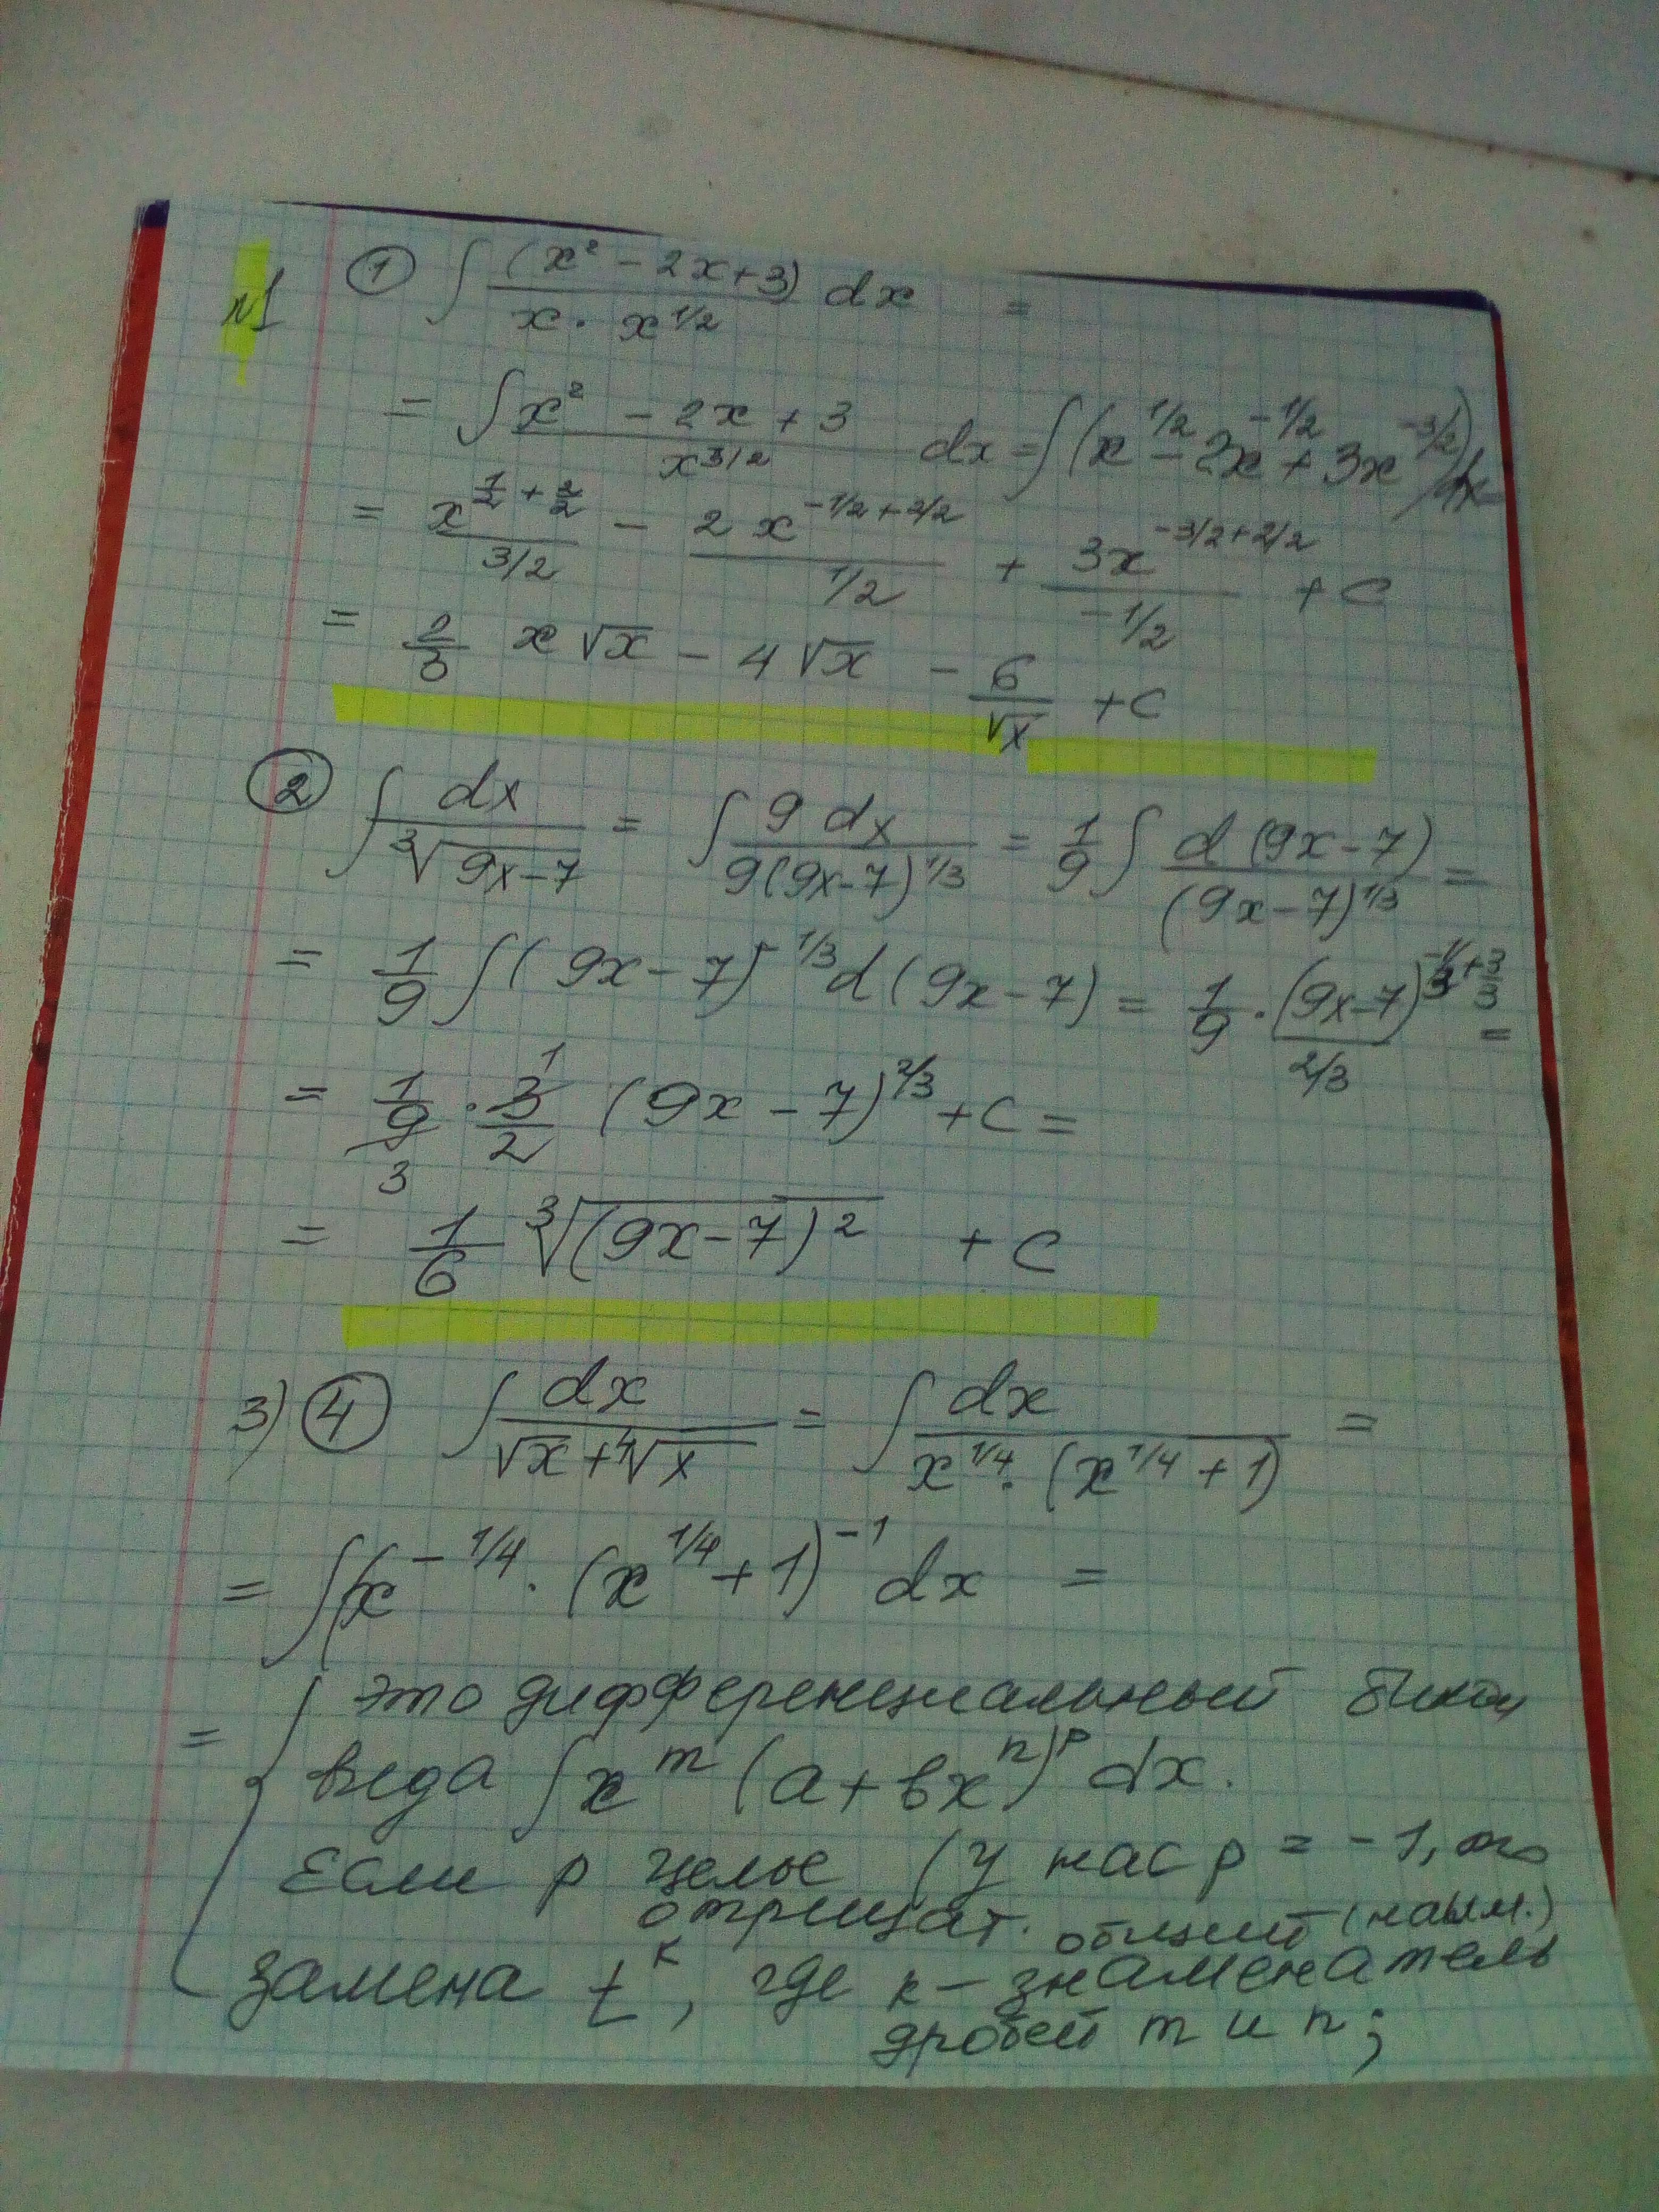 №1 ① ∫ (x² - 2x+3) / (x · x^1/2) dx =
= ∫ (x² - 2x + 3) / x^3/2 dx = ∫(x^1/2 - 2x^-1/2 + 3x^-3/2)dx
= x^(1/2 + 2/2) / (3/2) - 2x^(-1/2+2/2) / (1/2) + 3x^(-3/2+2/2) / (-1/2) + C
= 2/3 x√x - 4√x - 6/√x + C
② ∫ dx / ∛(9x-7) = ∫ 9 dx / 9(9x-7)^1/3 = 1/9 ∫ d(9x-7) / (9x-7)^1/3 =
= 1/9 ∫(9x-7)^-1/3 d(9x-7) = 1/9 · (9x-7)^(-1/3+3/3) / (2/3) =
= 1/9 · 3/2 (9x-7)^2/3 + C =
1
3
= 1/6 ∛(9x-7)² + C
3) ④ ∫ dx / (√x + ∜x) = ∫ dx / (x^1/4 · (x^1/4 + 1)) =
= ∫(x^-1/4 · (x^1/4 + 1)^-1 dx =
= { это дифференциальный бином
вида ∫x^m (a+bx^n)^p dx.
Если p целое (у нас p = -1, то
отрицат. общий (наим.)
замена t^k, где k – знаменатель
дробей m и n;